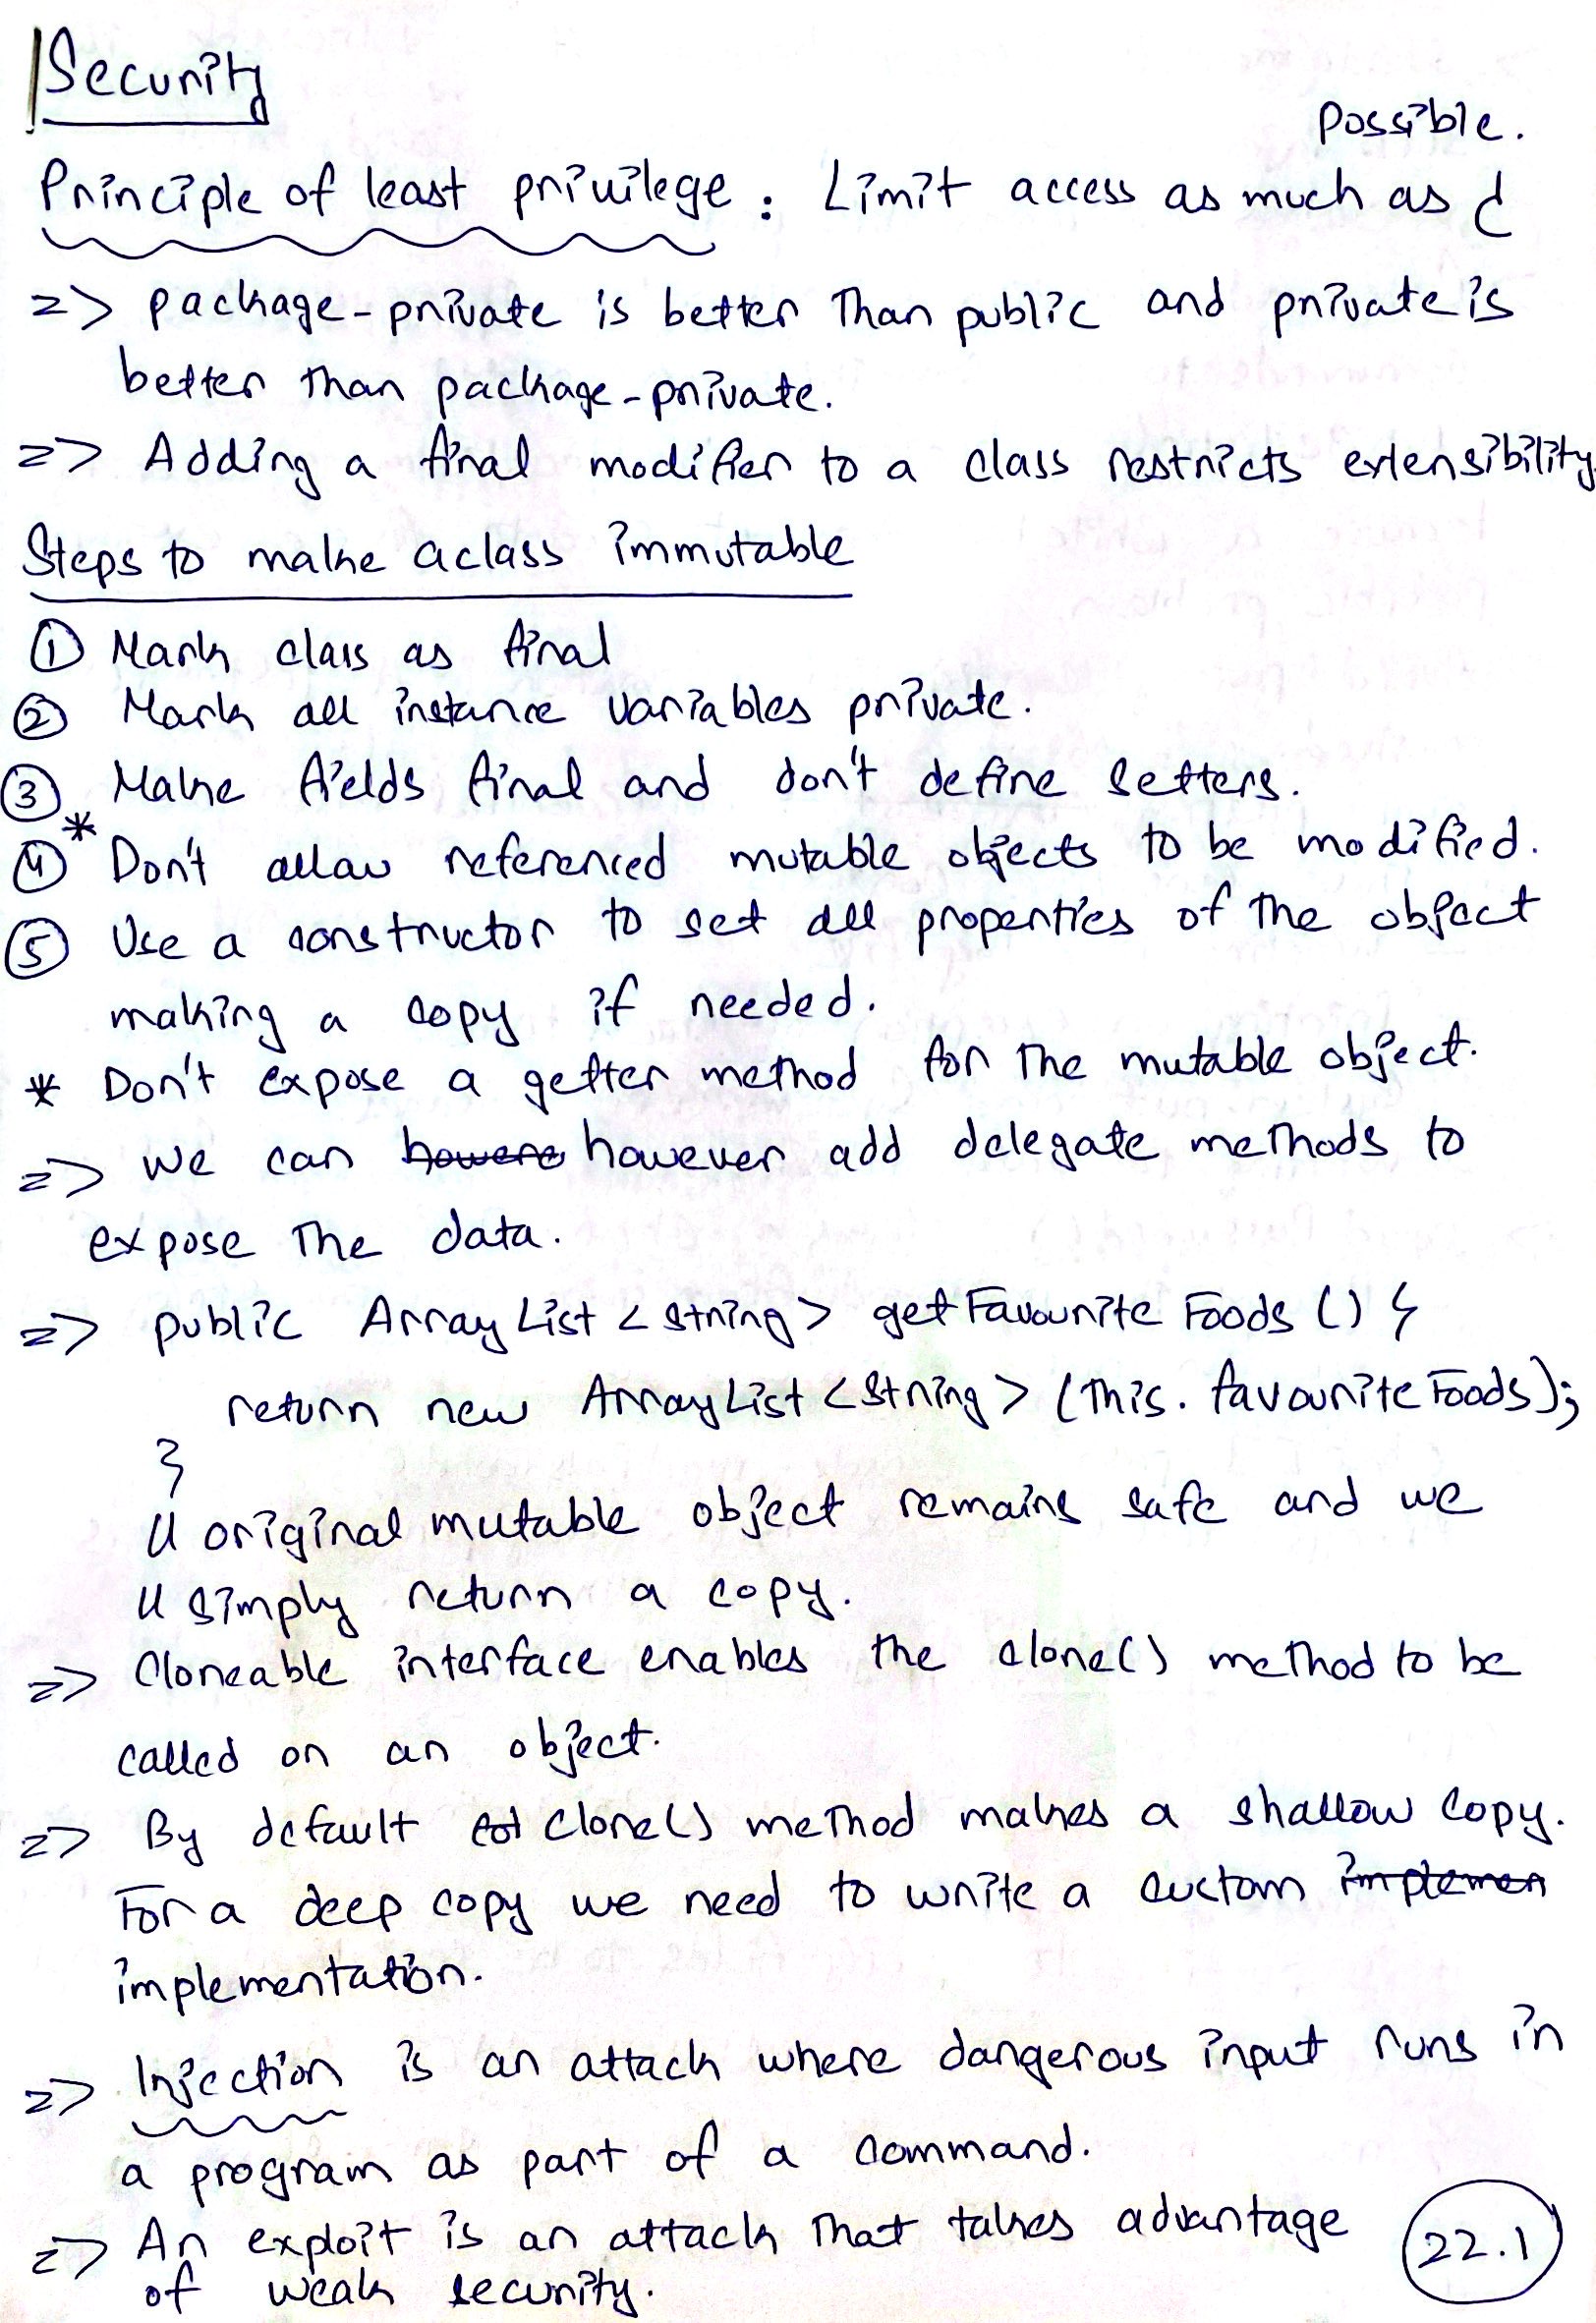 Security
Principle of least privilege : Limit access as much as possible.
=> package-private is better than public and private is
better than package-private.
=> Adding a final modifier to a class restricts extensibility.
Steps to make a class immutable
① Mark class as final
② Mark all instance variables private.
③ Make fields final and don't define setters.
④* Don't allow referenced mutable objects to be modified.
⑤ Use a constructor to set all properties of the object
making a copy if needed.
* Don't expose a getter method for the mutable object.
=> We can however add delegate methods to
expose the data.
=> public ArrayList <String> getFavouriteFoods () {
return new ArrayList <String> (this. favouriteFoods);
}
// original mutable object remains safe and we
// simply return a copy.
=> Cloneable interface enables the clone() method to be
called on an object.
=> By default clone() method makes a shallow copy.
For a deep copy we need to write a custom
implementation.
=> Injection is an attack where dangerous input runs in
a program as part of a command.
=> An exploit is an attack that takes advantage
of weak security.
22.1